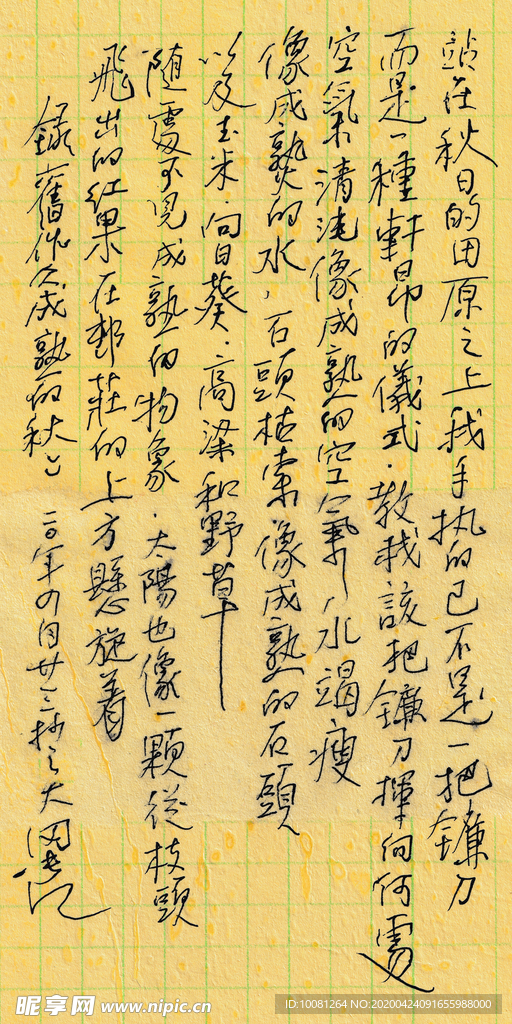 站在秋日的田原之上我手执的已不是一把鐮刀
而是一種軒昂的儀式．教我該把鐮刀揮向何處
空氣清純像成熟的空氣，水竭瘦
像成熟的水，石頭枯索像成熟的石頭
以及玉米．向日葵．高梁和野草
随處可見成熟的物象．太陽也像一顆從枝頭
飛出的紅果在邨莊的上方懸旋着
錄舊作《成熟的秋》
二〇年四月廿三抄之大
昵享网 www.nipic.cn
ID:10081264 NO:20200424091655988000